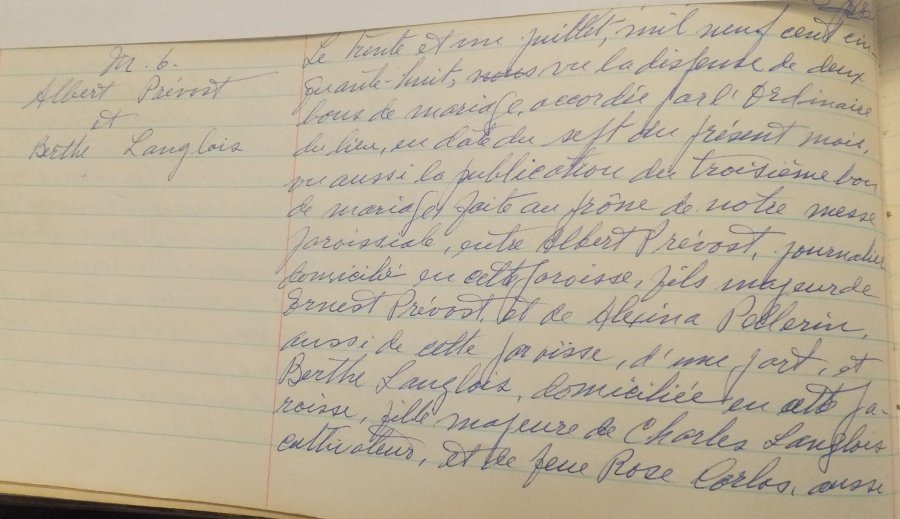 M. 6.
Albert Prévost
et
Berthe Langlois
Le trente et un juillet, mil neuf cent cin-
quante-huit, nous vu la dispense de deux
bans de mariage, accordée par l'Ordinaire
du lieu, en date du sept du présent mois,
vu aussi la publication du troisième ban
de mariage, faite au prône de notre messe
paroissiale, entre Albert Prévost, journalier
domicilié en cette paroisse, fils majeur de
Ernest Prévost, et de Alexina Pellerin,
aussi de cette paroisse, d'une part, et
Berthe Langlois, domiciliée en cette pa-
roisse, fille majeure de Charles Langlois
cultivateur, et de feue Rose Carlos, aussi